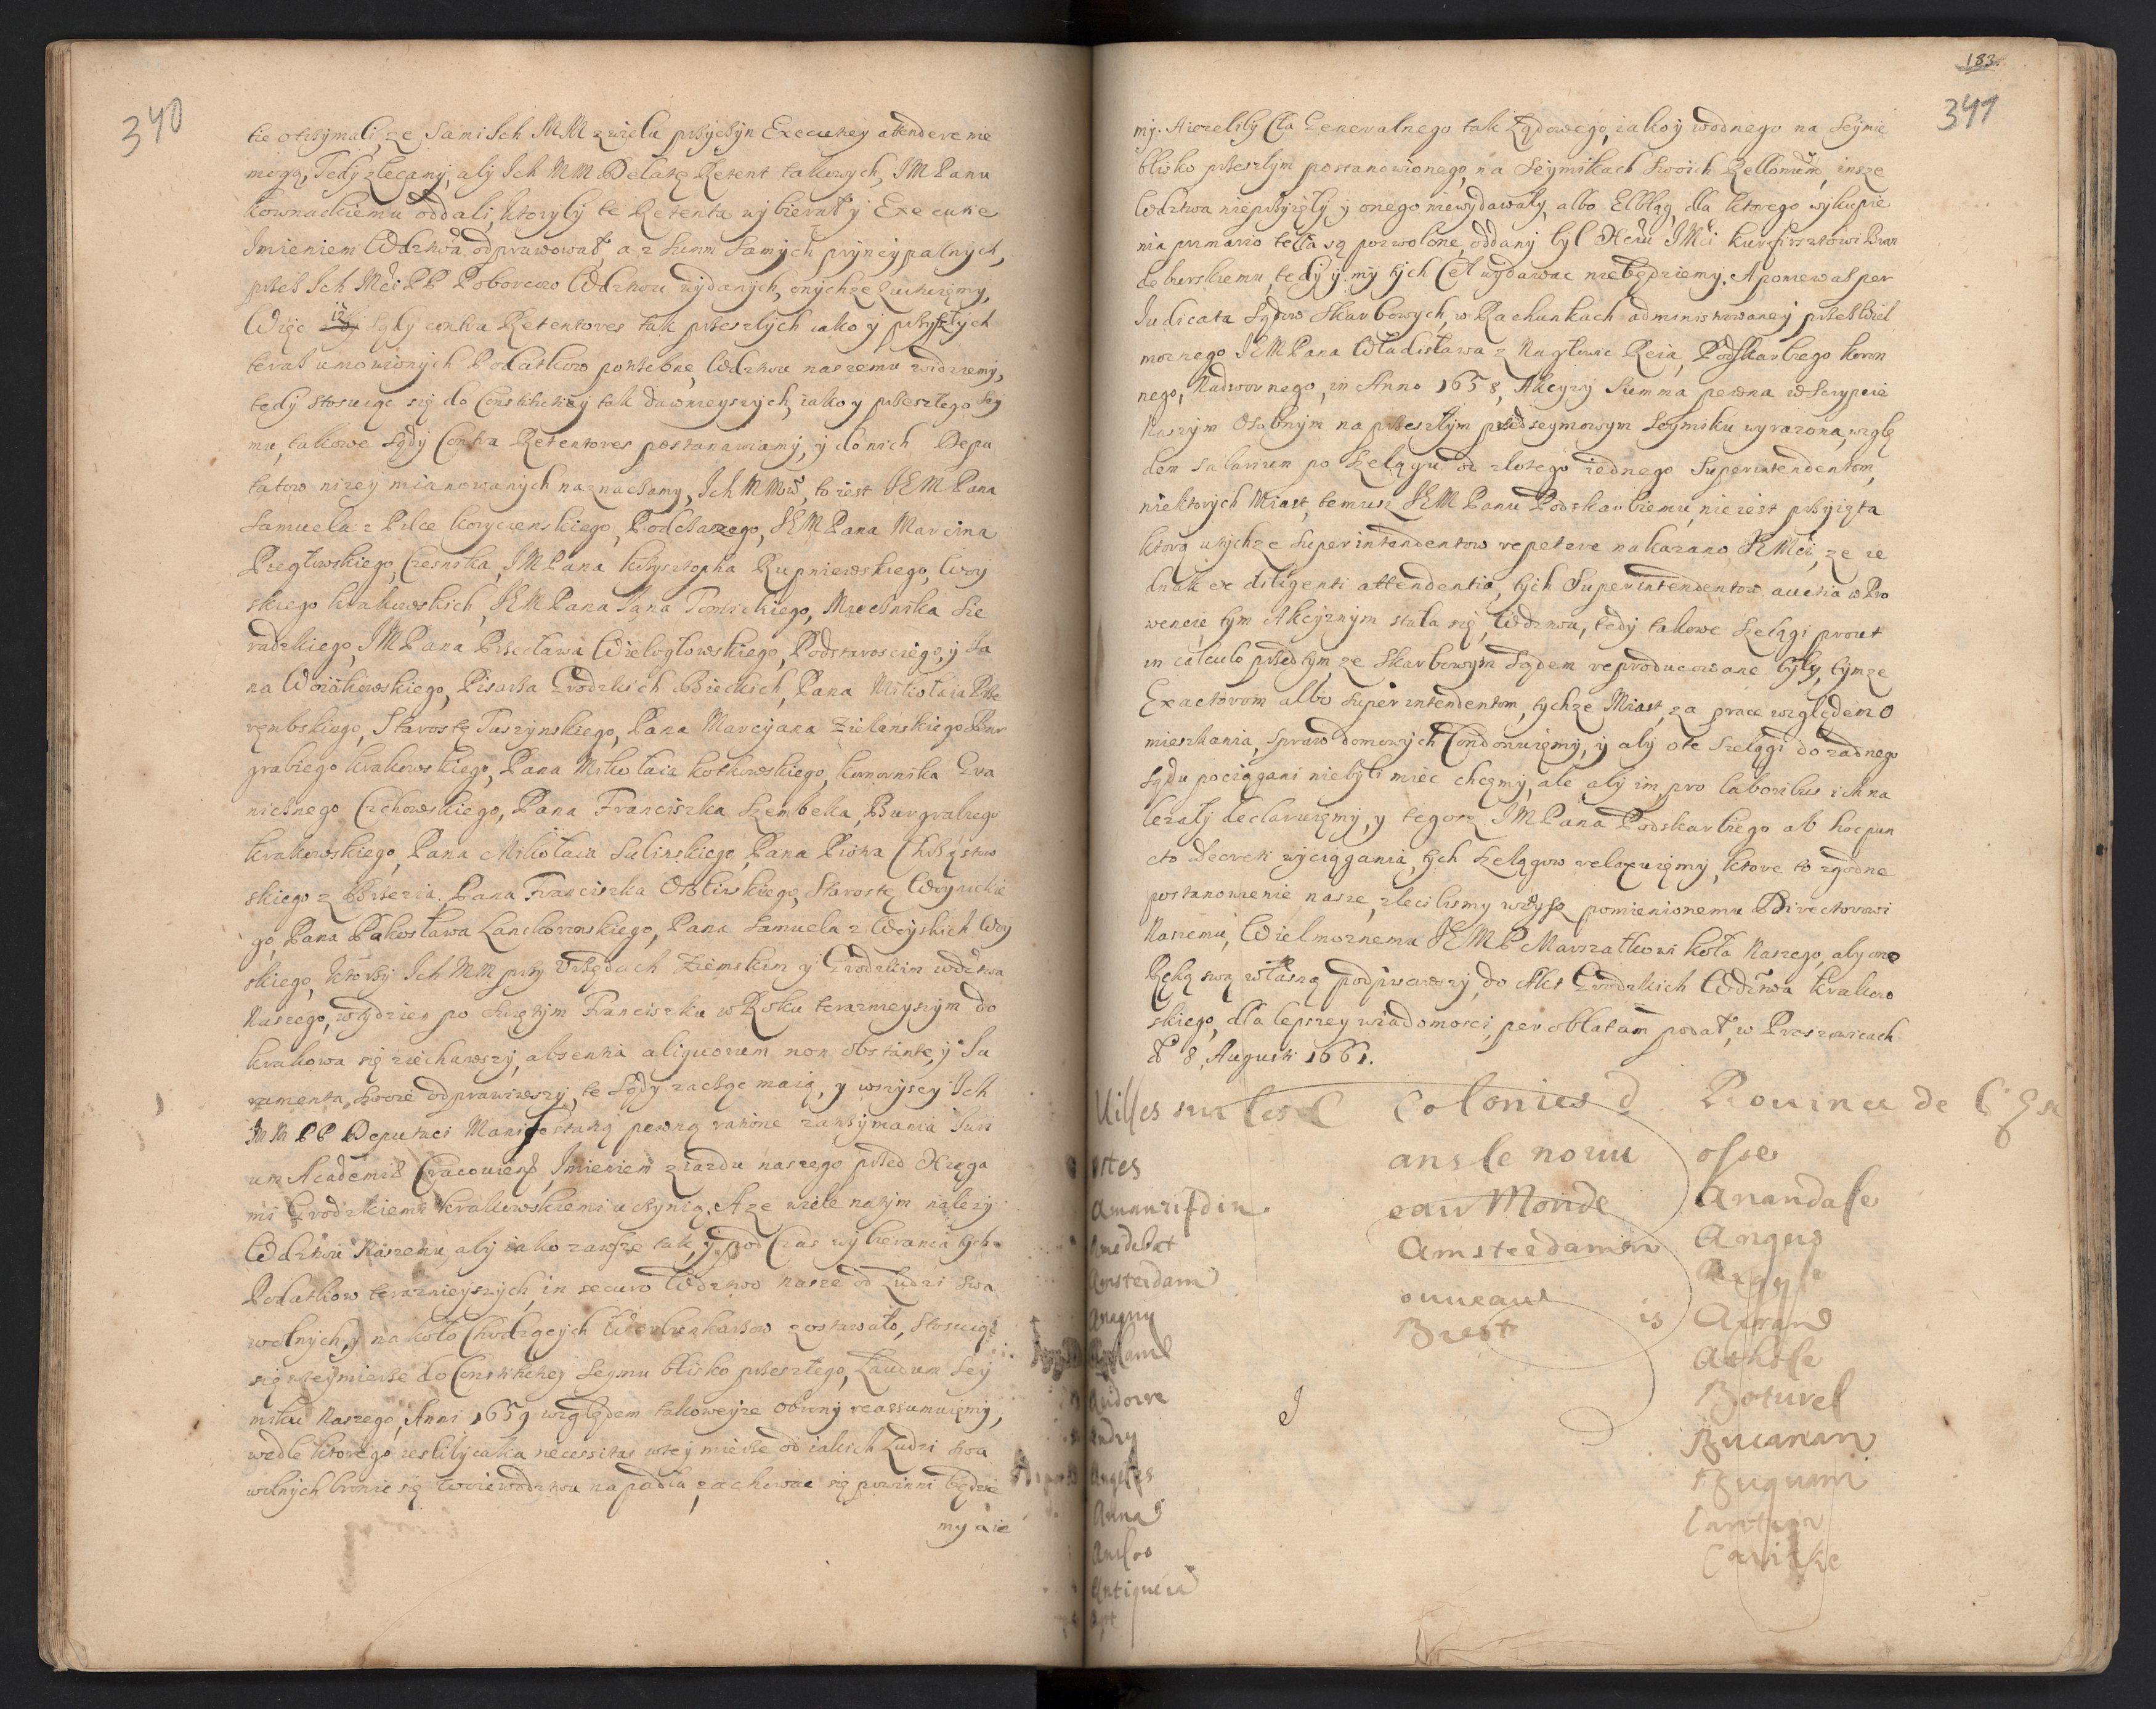 340
tie otrzymali, ze sami Ich MM z wielu przyczyn Executiey attendere nie
mogą, Tedy zlecamy, aby Ich MM Delatę Retent takowych, IM Panu
kownackiemu oddali, ktoryby te Retenta wybierał y Executie
Imieniem Wdztwa odprawował, a z Summ samych pryncypalnych,
przez Ich Mći PP Poborcow Wdztwu wydanych, onychze kwituiemy,
Więc iż Sądy contra Retentores tak przeszłych iako y przyszłych
teraz umowionych Podatkow potrzebne, Wdztwu naszemu widziemy,
tedy stosuiąc się do Constitutiey tak dawnieyszych, iako y przeszłego Sey
mu, takowe Sądy Contra Retentores postanawiamy, y do nich Depu
tatow nizey mianowanych naznaczamy, Ich MMw, to iest IEM Pana
Samuela z Pilce koryczenskiego, Podczaszego, IEM Pana Marcina
Pregłowskiego, Czesnika, IM Pana Krzysztopha Rupniewskiego, Woy
skiego krakowskich, IEM Pana Jana Tomickiego, Miecznika Sie
radzkiego, IM Pana Przecława Wielogłowskiego, Podstarosciego, y Ja
na Woiakowskiego, Pisarza Grodzkich Bieckich, Pana Mikołaia Prze
rębskiego, Starostę Tuszynskiego, Pana Marcyana Zielenskiego Bur
grabiego krakowskiego, Pana Mikołaia kotkowskiego, komornika Gra
nicznego Czchowskiego, Pana Franciszka Szembeka, Burgrabiego
krakowskiego, Pana Mikołaia Sulinskiego, Pana Piotra Chrząstow
skiego z Brzezia. Pana Franciszka Starostę Woynickie
go, Pana Pakosława Lanckoronskiego, Pana Samuela z Woyskich Woy
skiego, ktorzy Ich MM przy Urzędach Ziemskim y Grodzkim wdztwa
Naszego, w tydzien po Swiętym Franciszku w Roku teraznieyszym do
krakowa się ziechawszy, absentia aliquorum non obstante, y Iu
ramenta swoie odprawiwszy, te Sądy zacząc maią, y wszyscy Ich
MM PP Deputaci Manifestatią pewną ratione zatrzymania Iuri
um Academiæ Cracoviens, Imieniem ziazdu naszego przed Xięga
mi Grodzkiemi krakowskiemi uczynią. A ze wiele natym nalezy
Wdztwu Naszemu, aby iako zawsze tak, y pod Czas wybierania tych
Podatkow teraznieyszych, in securo Wdztwo nasze od Ludzi swa
wolnych, y nakoło Chodzących Werbunkarzow zostawało, stosuiąc
się wteymierze do Constitutiey Seymu blisko przeszłego, Laudum Sey
miku Naszego, Anni 1659 względem takoweyze obrony reassumuiemy,
wedle ktorego iesliby iaka necessitas wtey mierze od iakich Ludzi swa
wolnych bronic się Woiewodztwu napadła, zachowac się powinni będzie
my a ie
183
341
my. A iezeliby Cła Generalnego tak Lądowego, iako y wodnego na Seymie
blisko przeszłym postanowionego, na Seymikach swoich Rellationum, insze
Wdztwa nieprzyięły y onego niewydawały, albo Elbląg, dla ktorego wykupie
nia primario te Cła są pozwolone, oddany był Xciu IMći kurfirsztowi Bran
deburskiemu, tedy y my tych Ceł wydawac niebędziemy. A poniewasz per
Iudicata Sądow Skarbowych, w Rachunkach administrowaney przez Wiel
moznego IEM Pana Władisława z Nagłowic Reia, Podskarbiego koron
nego, Nadwornego, in Anno 1658, Akcyzy Summa pewna w Scrypcie
Naszym Osobnym na przeszłym przedseymowym Seymiku wyrazona, wzglę
dem salarium po Szelągu od złotego iednego Superintendentom,
niektorych Miast, temusz IEM Panu Podskarbiemu, nie iest przyięta
ktorą utychze Superintendentow repetere nakazano IEMći, ze ie
dnak ex diligenti attendentia, tych Superintendentow auctia w Pro
wencie tym Akcyznym stała się, Wdztwu, tedy takowe Szelągi prout
in calculo przedtym, ze Skarbowym Sądem reproducowane były, tymze
Exactorom albo Superintendentom, tychze Miast, za prace względem o
mieszkania, spraw domowych Condonuiemy, y aby o te Szelągi do zadnego
Sądu pociągani niebyli miec chcemy, ale aby im pro laboribus ich na
lezały declaruiemy, y tegosz IM Pana Podskarbiego ab hoc pun
cto Decreti wyciągania, tych Szelągow relaxuiemy, ktore to zgodne
postanowienie nasze, zlecilismy wzysz pomienionemu Directorowi
Naszemu, Wielmoznemu IEM P Marszałkowi koła Naszego, aby one
Ręką swą własną podpisawszy, do Akt Grodzkich Wdztwa krakow
skiego, dla lepszey wiadomosci, per oblatam podał, w Proszowicach
D 8 Augusti 1661.
Villes sur les Colonies d Rouince de
ostes ansle nouu osse
eau Monde Anandale
Amsterdam Amsterdamm Angus
ouueau
Brest is Arrand
Athole
Andorre Boturel
J
Bucanan
Anna Buquam
Anclos Cantyr
Antiquera Carricke